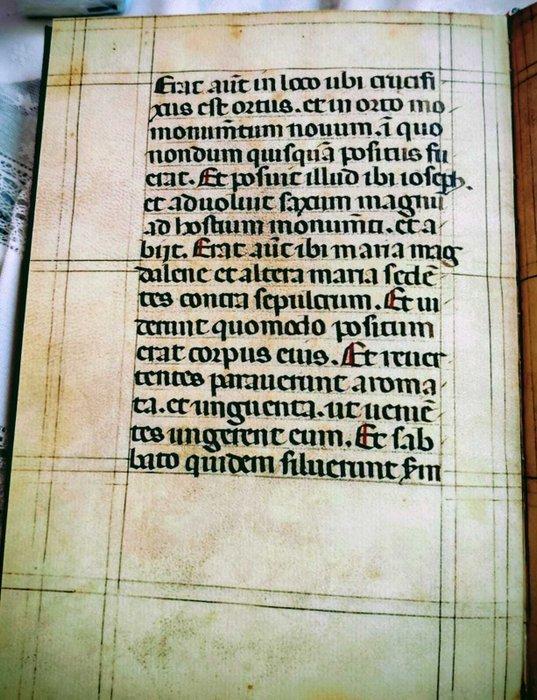 Erat aūt in loco ubi crucifi
xus est ortus. et in orto mo
monumētum nouum. ī quo
nondum quisquā positus fu
erat. Et posuit illud ibi ioseph.
et aduoluit saxum magnū
ad hostium monumēti. et a
bijt. Erat aūt ibi maria mag
dalene et altera maria sedē
tes contra sepulcrum. Et ui
derunt quomodo positum
erat corpus eius. Et reuer
tentes parauerunt aroma
ta. et unguenta. ut ueniē
tes ungerent eum. Et sab
bato quidem siluerunt sm